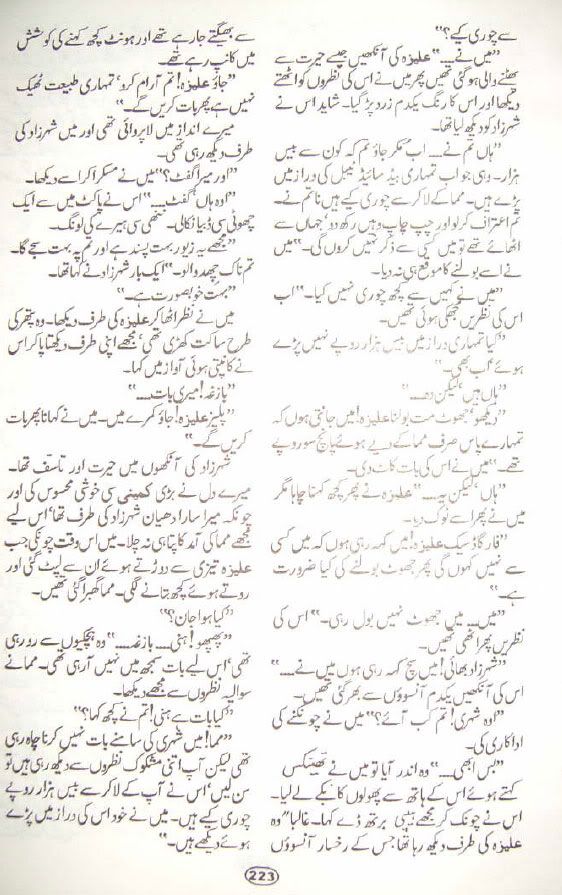 سے چوری کیے؟"
"میں نے....." علیزہ کی آنکھیں جیسے حیرت سے
پھٹنے والی ہوگئی تھیں پھر میں نے اس کی نظروں کو اٹھتے
دیکھا اور اس کا رنگ یکدم زرد پڑ گیا۔ شاید اس نے
شہرزاد کو دیکھ لیا تھا۔
"ہاں تم نے.... اب مکر جاؤ تم کہ کون سے بیس
ہزار۔ وہی جو اب تمہاری بیڈ سائیڈ ٹیبل کی دراز میں
پڑے ہیں۔ مما کے لاکر سے چوری کیے ہیں نا تم نے۔
تم اعتراف کر لو اور چپ چاپ وہیں رکھ دو، جہاں سے
اٹھائے تھے تو میں کسی سے ذکر نہیں کروں گی۔" میں
نے اسے بولنے کا موقع ہی نہ دیا۔
"میں نے کہیں سے کچھ چوری نہیں کیا۔" اب
اس کی نظریں جھکی ہوئی تھیں۔
"کیا تمہاری دراز میں بیس ہزار روپے نہیں پڑے
ہوئے، اب بھی۔"
"ہاں ہیں، لیکن وہ...."
"دیکھو، جھوٹ مت بولنا علیزہ! میں جانتی ہوں کہ
تمہارے پاس صرف مما کے دیے ہوئے پانچ سو روپے
تھے۔" میں نے اس کی بات کاٹ دی۔
"ہاں، لیکن یہ...." علیزہ نے پھر کچھ کہنا چاہا مگر
میں نے پھر اسے ٹوک دیا۔
"فار گاڈ سیک علیزہ! میں کہہ رہی ہوں کہ میں کسی
سے نہیں کہوں گی پھر جھوٹ بولنے کی کیا ضرورت
ہے۔"
"میں.... میں جھوٹ نہیں بول رہی۔" اس کی
نظریں پھر اٹھی تھیں۔
"شہرزاد بھائی! میں سچ کہہ رہی ہوں میں نے...."
اس کی آنکھیں یکدم آنسوؤں سے بھر گئی تھیں۔
"اوہ شہری! تم کب آئے؟" میں نے چونکنے کی
اداکاری کی۔
"بس ابھی...." وہ اندر آیا تو میں نے تھینکس
کہتے ہوئے اس کے ہاتھ سے پھولوں کا بکے لے لیا۔
اس نے چونک کر مجھے ہیپی برتھ ڈے کہا۔ غالباً "وہ
علیزہ کی طرف دیکھ رہا تھا جس کے رخسار آنسوؤں
سے بھیگتے جا رہے تھے اور ہونٹ کچھ کہنے کی کوشش
میں کانپ رہے تھے۔
"جاؤ علیزہ! تم آرام کرو، تمہاری طبیعت ٹھیک
نہیں ہے پھر بات کریں گے۔"
میرے انداز میں لاپروائی تھی اور میں شہرزاد کی
طرف دیکھ رہی تھی۔
"اور میرا گفٹ؟" میں نے مسکرا کر اسے دیکھا۔
"اوہ ہاں، گفٹ...." اس نے پاکٹ میں سے ایک
چھوٹی سی ڈبیا نکالی۔ ننھی سی ہیرے کی لونگ۔
"مجھے یہ زیور بہت پسند ہے اور تم پہ بہت سجے گا۔
تم ناک چھدوا لو۔" ایک بار شہرزاد نے کہا تھا۔
"بہت خوبصورت ہے۔"
میں نے نظر اٹھا کر علیزہ کی طرف دیکھا۔ وہ پتھر کی
طرح ساکت کھڑی تھی، مجھے اپنی طرف دیکھتا پا کر اس
نے کانپتی ہوئی آواز میں کہا۔
"بازغہ! میری بات....."
"پلیز علیزہ! جاؤ کمرے میں۔ میں نے کہا نا پھر بات
کریں گے۔"
شہرزاد کی آنکھوں میں حیرت اور تاسف تھا۔
میرے دل نے بڑی کمینی سی خوشی محسوس کی اور
چونکہ میرا سارا دھیان شہرزاد کی طرف تھا، اس لیے
مجھے مما کی آمد کا پتا ہی نہ چلا۔ میں اس وقت چونکی جب
علیزہ تیزی سے دوڑتے ہوئے ان سے لپٹ گئی اور
روتے ہوئے کچھ بتانے لگی۔ مما گھبرا گئی تھیں۔
"کیا ہوا جان؟"
"پھپھو! ہنی.... بازغہ...." وہ ہچکیوں سے رو رہی
تھی، اس لیے بات سمجھ میں نہیں آ رہی تھی۔ مما نے
سوالیہ نظروں سے مجھے دیکھا۔
"کیا بات ہے ہنی! تم نے کچھ کہا؟"
"مما! میں شہری کی سامنے بات نہیں کرنا چاہ رہی
تھی لیکن آپ اتنی مشکوک نظروں سے دیکھ رہی ہیں تو
سن لیں، اس نے آپ کے لاکر سے بیس ہزار روپے
چوری کیے ہیں۔ میں نے خود اس کی دراز میں پڑے
ہوئے دیکھے ہیں۔"
223